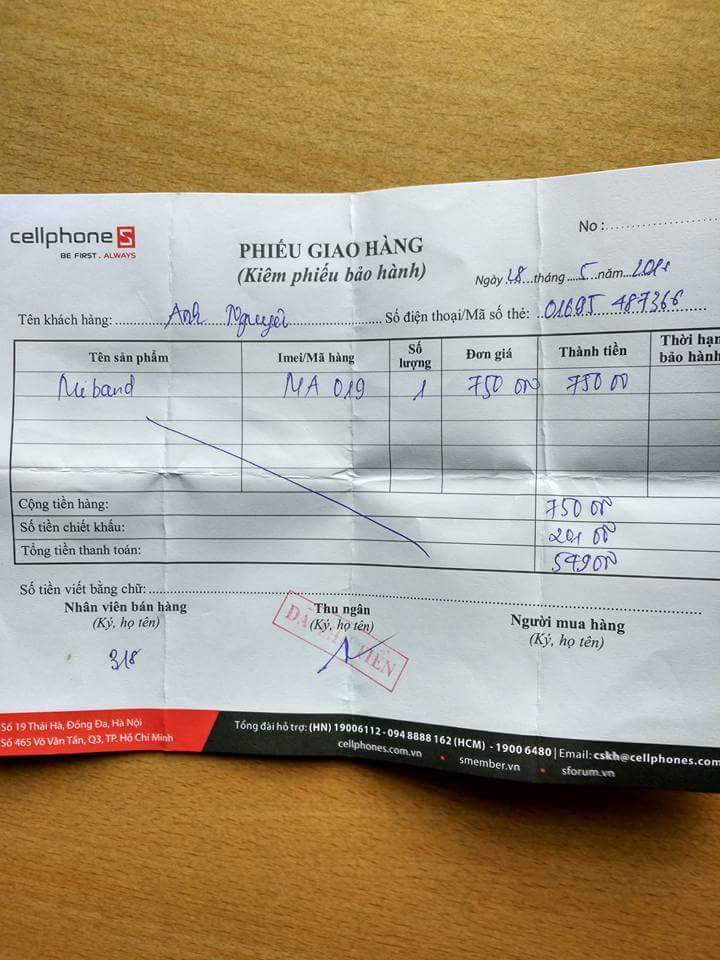 cellphoneS
BE FIRST . ALWAYS
PHIẾU GIAO HÀNG
(Kiêm phiếu bảo hành)
No :
Ngày 28 tháng 5 năm
Tên khách hàng: Anh Nguyên Số điện thoại/Mã số thẻ: 01695 487366
Tên sản phẩm Imei/Mã hàng Số lượng Đơn giá Thành tiền Thời hạn bảo hành
Miband MA 019 1 750 000 750 00
Cộng tiền hàng: 750 00
Số tiền chiết khấu: 201 00
Tổng tiền thanh toán: 549 00
Số tiền viết bằng chữ:
Nhân viên bán hàng Thu ngân Người mua hàng
(Ký, họ tên) (Ký, họ tên) (Ký, họ tên)
318
ĐÃ TIỀN
Số 19 Thái Hà, Đống Đa, Hà Nội
Số 465 Võ Văn Tần, Q3, TP. Hồ Chí Minh
Tổng đài hỗ trợ: (HN) 19006112 - 094 8888 162 (HCM) - 1900 6480 | Email: cskh@cellphones.com
cellphones.com.vn • smember.vn • sforum.vn